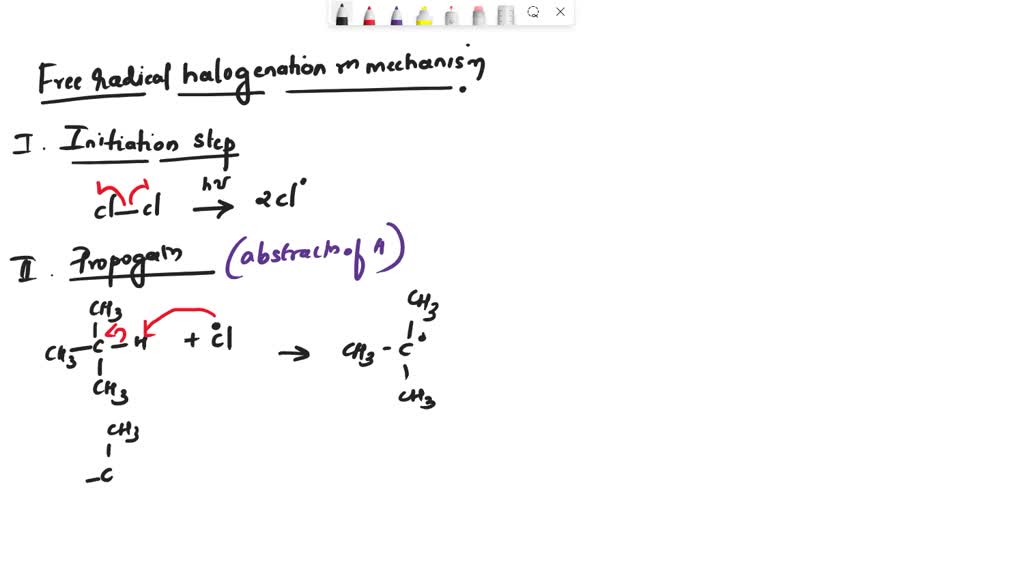 Free radical halogenation mechanism
I. Initiation step
Cl—Cl hν → 2Cl•
II. Propogatn (abstractn of H)
CH3 CH3
CH3—C—H + •Cl → CH3-C•
CH3 CH3
CH3
–C